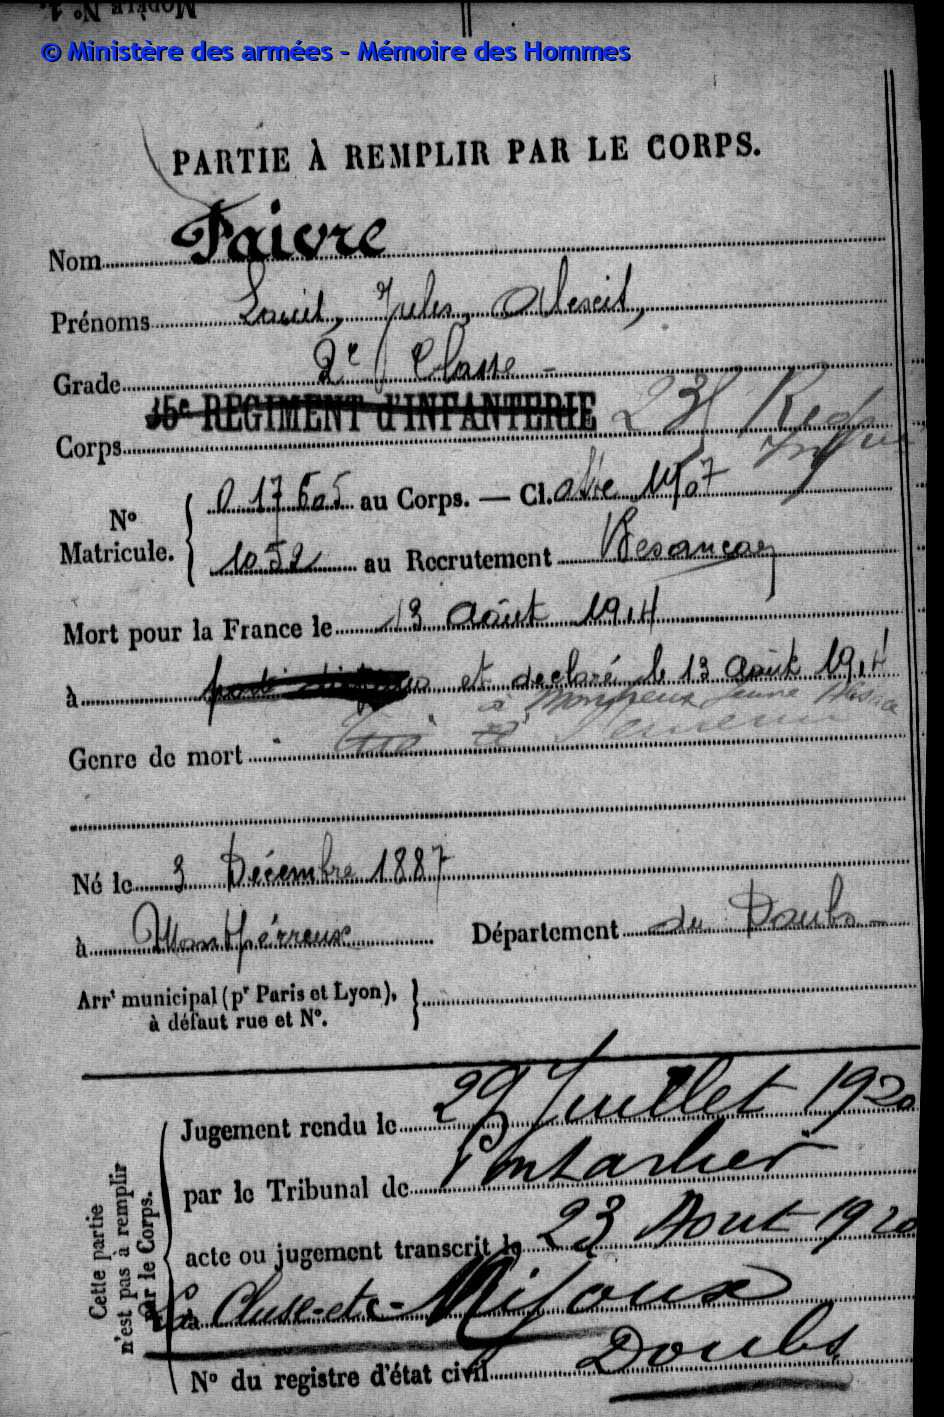 MODÈLE N° 1.
© Ministère des armées - Mémoire des Hommes
PARTIE À REMPLIR PAR LE CORPS.
Nom Faivre
Prénoms Louis, Jules, Alexis,
Grade 2e Classe -
15e RÉGIMENT d'INFANTERIE 235 Reg
Corps
N° Matricule. { 0 17605 au Corps. — Cl. 1907
1052 au Recrutement Besançon
Mort pour la France le 13 août 1914
à et déclaré le 13 août 1914
à Montreux Jeune Alsace
Genre de mort Tué
Né le 3 Décembre 1887
à Montperreux Département du Doubs -
Arrt municipal (pr Paris et Lyon), }
à défaut rue et N°.
Cette partie n'est pas à remplir par le Corps.
Jugement rendu le 29 Juillet 1920
par le Tribunal de Pontarlier
acte ou jugement transcrit le 23 Août 1920
à La Cluse-et-Mijoux
Doubs
N° du registre d'état civil